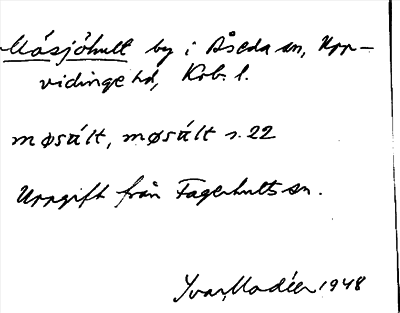 Måsjöhult by i Åseda sn, Upp-
vidinge hd, Krb. l.
møsúlt, møsúlt s. 22
Uppgift från Fagerhults sn.
Ivar Modéer 1948